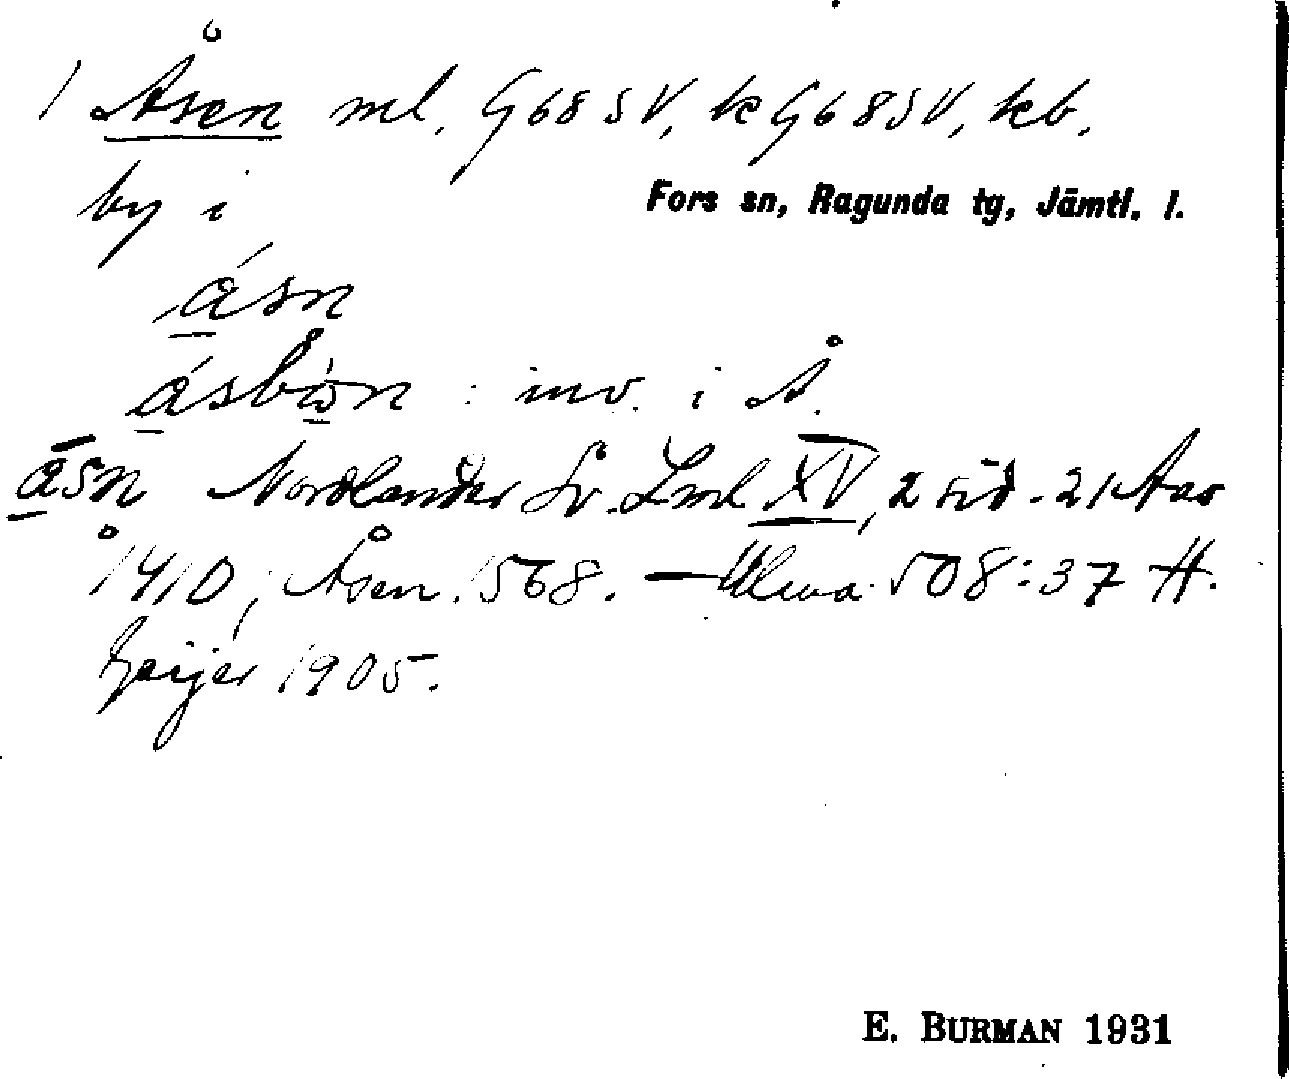 1 Åsen ml. G68SV, k G68SV, kb.
by i Fors sn, Ragunda tg, Jämtl. l.
ásn
ásbon : inv. i Å.
āsn Nordlander Sv. Lml XV, 2 sid. 21 Aas
å 1410, Åsen 1568. — Ulma 508:37 H.
Geijer 1905.
E. BURMAN 1931